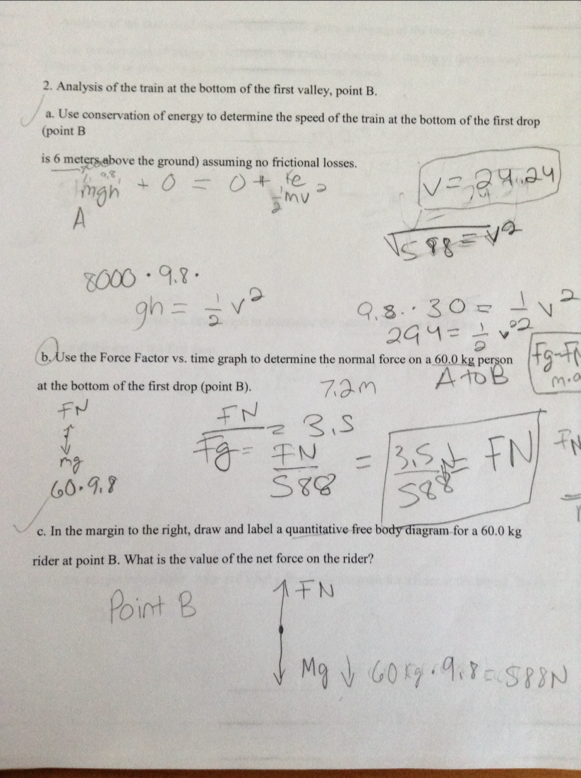 2. Analysis of the train at the bottom of the first valley, point B.
a. Use conservation of energy to determine the speed of the train at the bottom of the first drop
(point B
is 6 meters above the ground) assuming no frictional losses.
9.8
mgh + 0 = 0 + ke
½mv²
V = 24.24
A
√588 = v²
8000 · 9.8 ·
gh = ½ v²
9.8 · 30 = ½ v²
294 = ½ v²
b. Use the Force Factor vs. time graph to determine the normal force on a 60.0 kg person
Fg-FN
m·a
at the bottom of the first drop (point B).
7.2m
A to B
FN
mg
60·9.8
FN
Fg = 3.5
FN
588
= 3.5
588
= FN
FN
c. In the margin to the right, draw and label a quantitative free body diagram for a 60.0 kg
rider at point B. What is the value of the net force on the rider?
Point B
↑ FN
Mg ↓ 60kg · 9.8 = 588N